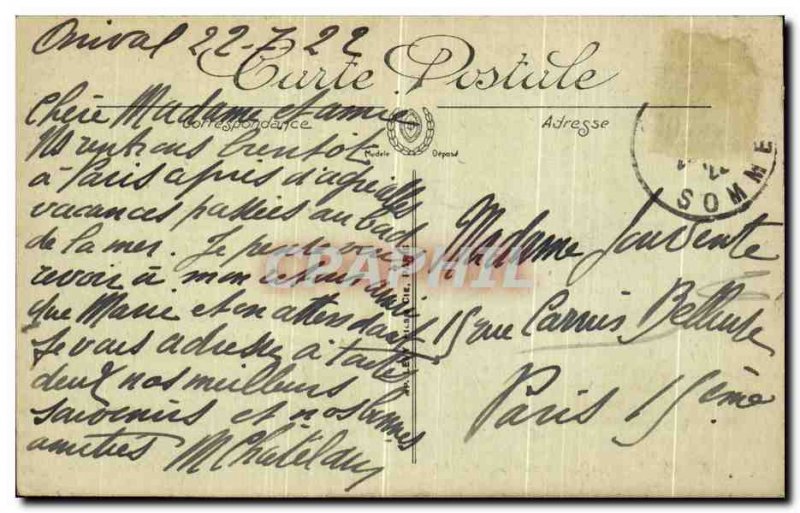 Onival 22-7-22
Carte Postale
Chère Madame et amie
Correspondance
Adresse
Modèle Déposé
Ns rentrons bientôt
à Paris après d'agréables
vacances passées au bord
de la mer. Je pense vous
revoir à mon retour ainsi
que Marie et en attendant
je vous adresse à toutes
deux nos meilleurs
souvenirs et nos bonnes
amitiés M Châtelain
SOMME
Madame Jouvente
15 rue Carriès Belleuse
Paris 15ème
CRAPHIL